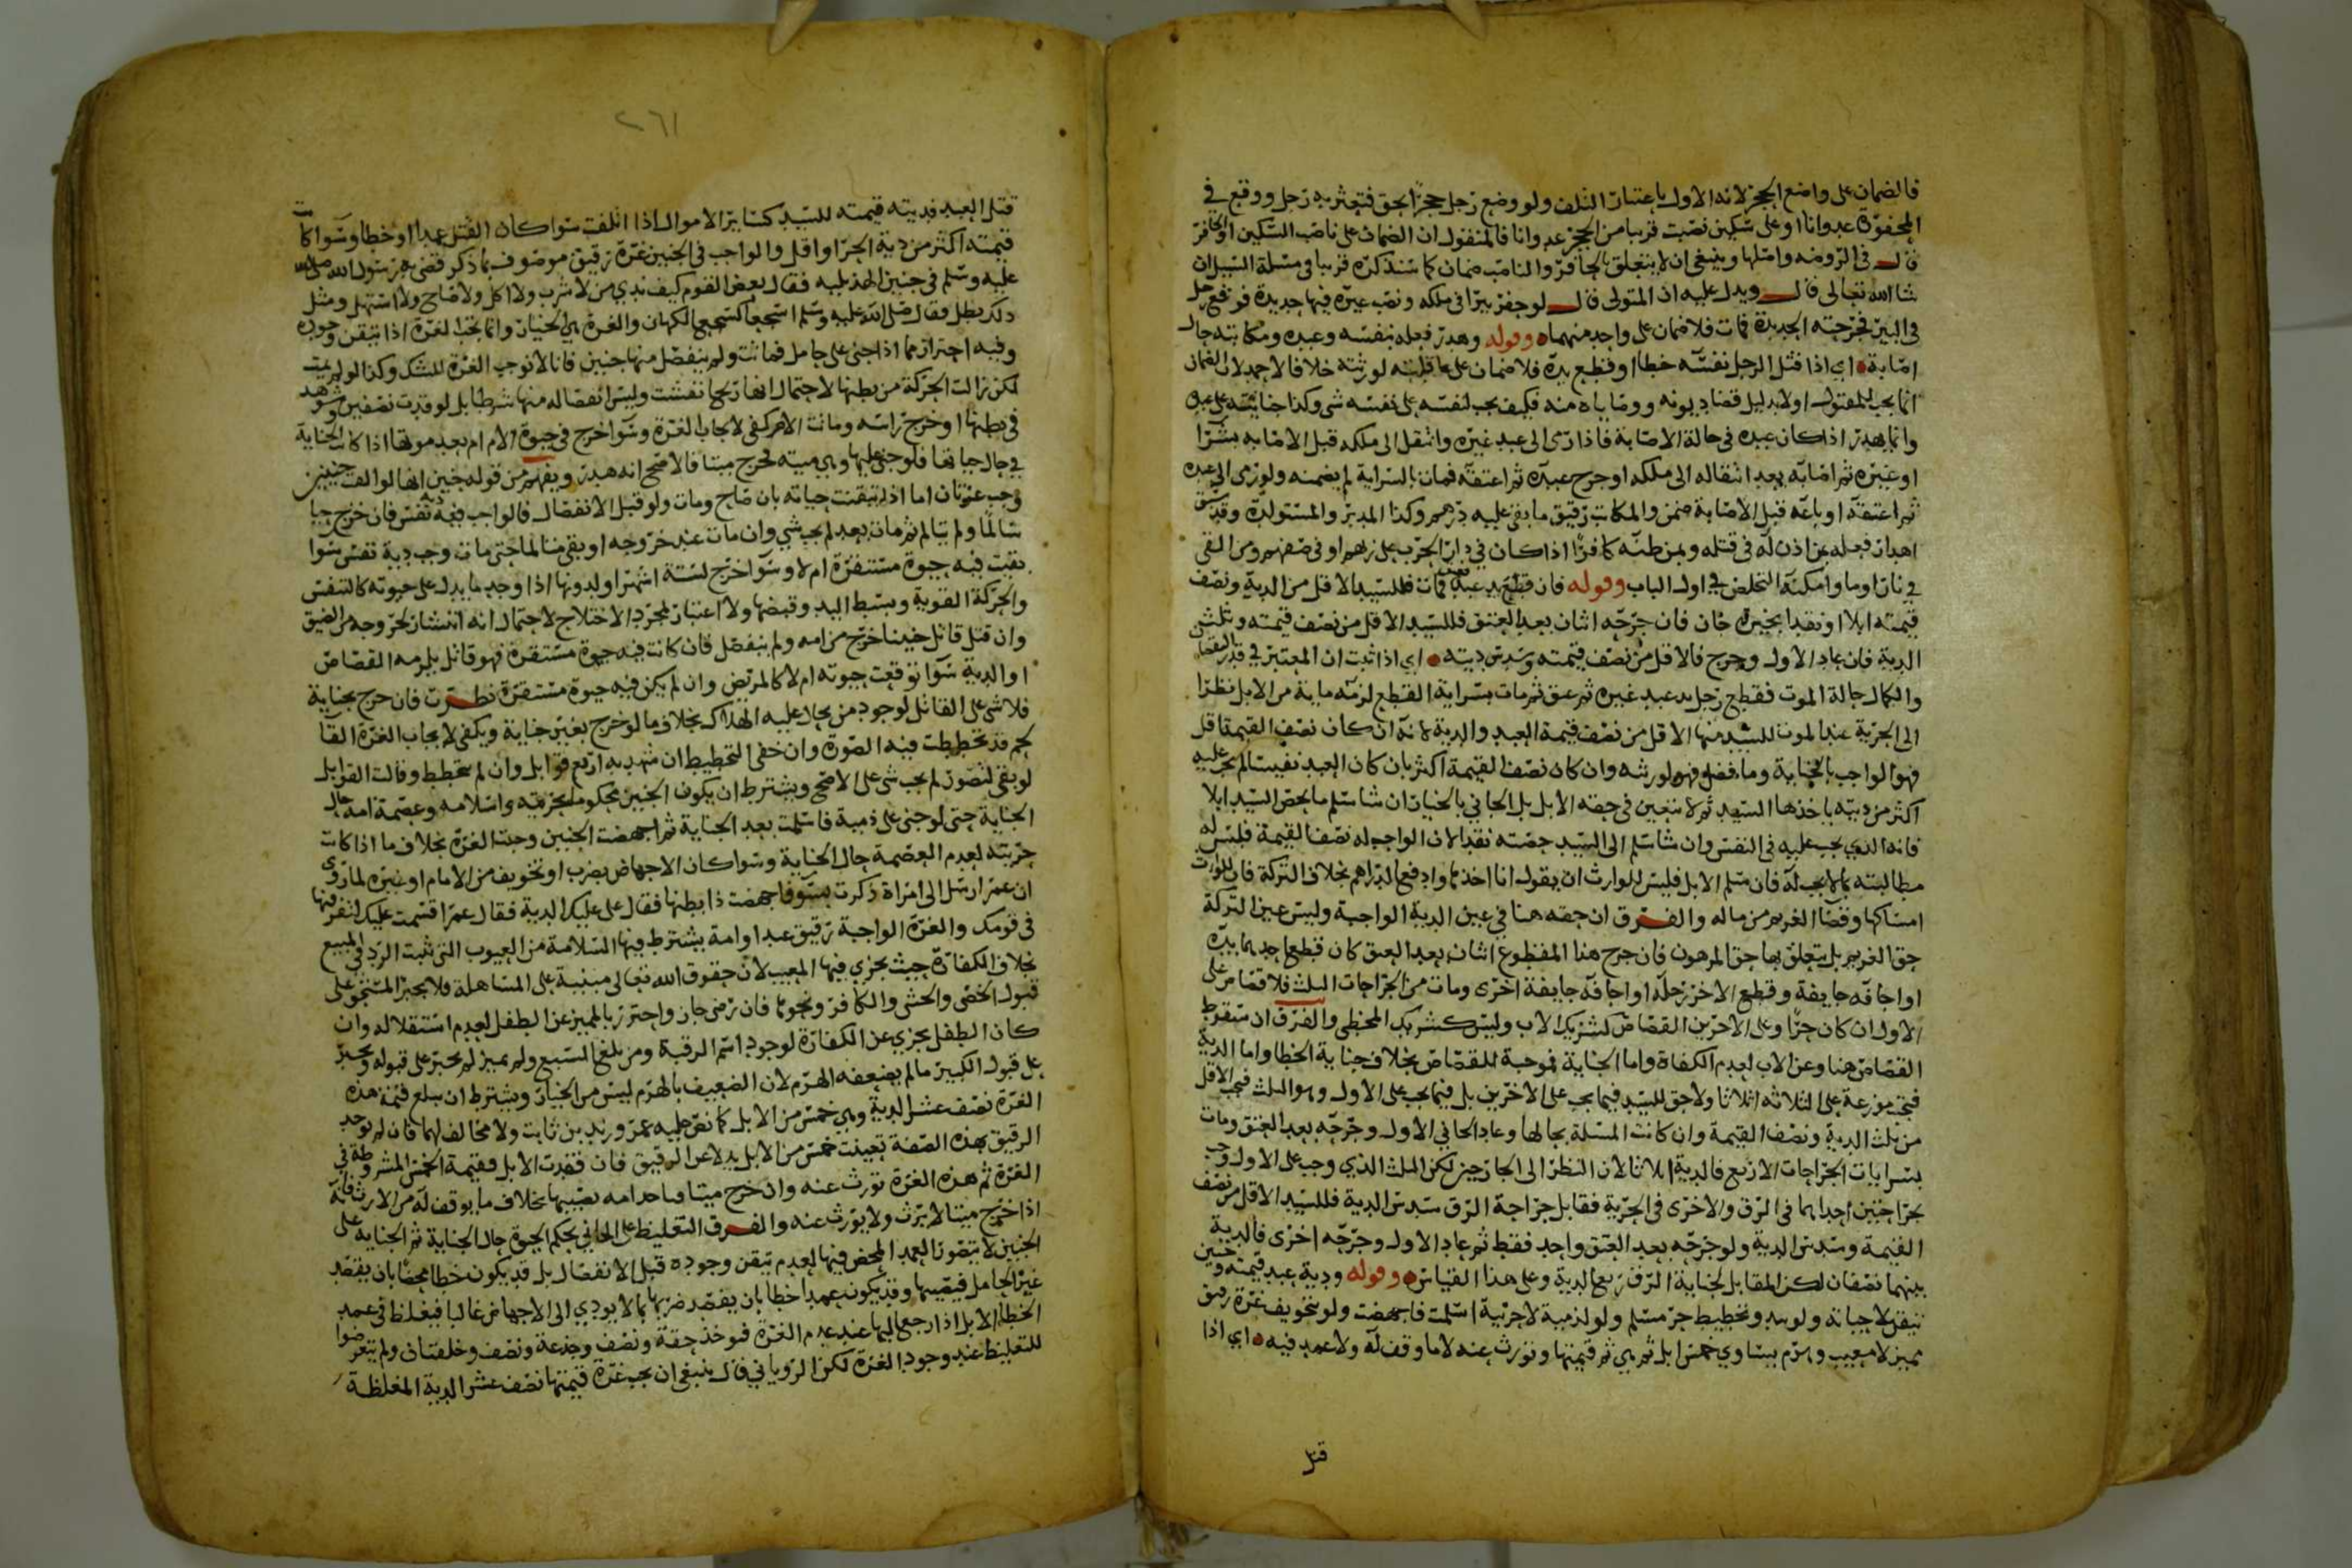 فالضمان على واضع الحجر لانه الاول باعتبار التلف ولو وضع رجل حجرا بحق فتعثر به رجل ووقع في
المحفورة عدوانا او على سكين نصبت قريبا من الحجر عدوانا فالمنقول ان الضمان على ناصب السكين او الحافر
قال في الروضه وامثلها وينبغي ان لا يتعلق بالحافر والناصب ضمان كما سنذكره قريبا في مسئلة السيل ان
شا الله تعالى قال ويدل عليه ان المتولي قال لو حفر بيرا في ملكه ونصب غيره فيها حديدة فوقع رجل
في البير فجرحته الحديدة فمات فلا ضمان على واحد منهما وقوله وهدر فعله بنفسه وعبده ومكاتبه حال
اصابة اي اذا قتل الرجل نفسه خطا او قطع يده فلا ضمان على عاقلته لورثته خلافا لاحمد لان الضمان
انما يجب للمقتول اولا بدليل قضا ديونه ووصاياه منه فكيف يجب لنفسه على نفسه شي وكذا جنايته على عبده
وانما يهدر اذا كان عبده في حالة الاصابة فاذا رمى الى عبد غيره وانتقل الى ملكه قبل الاصابه بشرا
او غيره ثم اصابه بعد انتقاله الى ملكه او جرح عبده ثم اعتقه فمات بالسراية لم يضمنه ولو رمى الى عبده
ثم اعتقه او باعه قبل الاصابة ضمن والمكاتب رقيق ما بقي عليه درهم وكذا المدبر والمستولدة وقد سبق
اهدار فعله بمن اذن له في قتله وبمن ظنه كافرا اذا كان في دار الحرب على زيهم او في صفهم ومن القي
في نار او ما وامكنه التخلص في اول الباب وقوله فان قطع يد عبد فعتق فمات فللسيد الاقل من الدية ونصف
قيمته ابلا او نقدا بخيرة جان فان جرحه اثنان بعد العتق فللسيد الاقل من نصف قيمته وثلث
الدية فان عاد الاول وجرح فالاقل من نصف قيمته وسدس ديته اي اذا ثبت ان المعتبر في قدر
والكمال حالة الموت فقطع رجل يد عبد غيره ثم عتق ثم مات بسراية القطع لزمه ماية من الابل نظرا
الى الحرية عند الموت للسيد منها الاقل من نصف قيمة العبد والدية لانه ان كان نصف القيمة اقل
فهو الواجب بالجناية وما فضل فهو لورثته وان كان نصف القيمة اكثر بان كان العبد نفيسا لم يجب عليه
اكثر من ديته ياخذها السيد ثم لا يتعين في حقه الابل بل الجاني بالخيار ان شا سلم ما يخص السيد ابلا
فانه الذي يجب عليه في النفس وان شا سلم الى السيد حصته نقدا لان الواجب له نصف القيمة فليس له
مطالبته بما لا يجب له فان سلم الابل فليس للوارث ان يقول انا اخذها وادفع الدراهم بخلاف التركة فان للوارث
امساكها وقضا الغريم من ماله والفرق ان حقه هنا في عين الدية الواجبة وليس عين التركة
حق الغريم بل يتعلق بها حق المرهون فان جرح هذا المقطوع اثنان بعد العتق كان قطع احدهما يده
او اجافه جايفة وقطع الاخر رجله او اجافه جايفة اخرى ومات من الجراحات الثلث فلا قصاص على
الاول ان كان حرا وعلى الاخرين القصاص كشريك الاب وليس كشريك المخطي والفرق ان سقوط
القصاص هنا وعن الاب لعدم الكفاة واما الجناية فموجبة للقصاص بخلاف جناية الخطا واما الدية
فتجب موزعة على الثلاثه اثلاثا ولا حق للسيد فيما يجب على الاخرين بل فيما يجب على الاول وهو الثلث فيجب الاقل
من ثلث الدية ونصف القيمة وان كانت المسئلة بحالها وعاد الجاني الاول وجرحه بعد العتق ومات
بسرايات الجراحات الاربع فالدية اثلاثا لان النظر الى الجارحين لكن الثلث الذي وجب على الاول وجب
بجراحتين احداهما في الرق والاخرى في الحرية فقابل جراحة الرق سدس الدية فللسيد الاقل من نصف
القيمة وسدس الدية ولو جرحه بعد العتق واحد فقط ثم عاد الاول وجرحه اخرى فالدية
بينهما نصفان لكن المقابل لجناية الرق ربع الدية وعلى هذا القياس وقوله ودية عبد قيمته وجنين
تيقن لا حياته ولو بيد وتخطيط حر مسلم ولو لذمية لا حربية اسلمت فاجهضت ولو بتخويف غرة رقيق
مميز لا معيب وهرم يساوي خمس ابل ثم هي ثم قيمتها وتورث عنه لا ما وقف له ولا عمد فيه اي اذا
قتل
٢٦١
قتل العبد فديته قيمته للسيد كساير الاموال اذا اتلفت سوا كان القتل عمدا او خطا وسوا كانت
قيمته اكثر من دية الحر او اقل والواجب في الجنين غرة رقيق موصوف بما ذكر قضى به رسول الله صلى الله
عليه وسلم في جنين الهذلية فقال بعض القوم كيف ندي من لا شرب ولا اكل ولا صاح ولا استهل ومثل
ذلك يطل فقال صلى الله عليه وسلم اسجعا كسجع الكهان والغرة هي الخيار وانما تجب الغرة اذا تيقن وجوده
وفيه احتراز عما اذا جنى على حامل فماتت ولم ينفصل منها جنين فانا لا نوجب الغرة للشك وكذا لو لم تمت
لكن زالت الحركة من بطنها لاحتمال انها ريحا نفشت وليس انفصاله منها شرطا بل لو قدت نصفين وشوهد
في بطنها او خرج راسه وماتت الام كفى لايجاب الغرة وسوا خرج في حيوة الام ام بعد موتها اذا كانت الجناية
في حال حياتها فلو جنى عليها وهي ميته فخرج ميتا فالاصح انه هدر ويفهم من قوله جنين انها لو القت جنينين
وجب غرتان اما اذا تيقنت حياته بان صاح ومات ولو قبل الانفصال فالواجب فيه دية نفس فان خرج حيا
سالما ولم يتالم ثم مات بعد لم يجب شي وان مات عند خروجه او بقي متالما حتى مات وجب دية نفس سوا
بقيت فيه حيوة مستقرة ام لا وسوا خرج لستة اشهر او لدونها اذا وجد ما يدل على حيوته كالتنفس
والحركة القوية وبسط اليد وقبضها ولا اعتبار بمجرد الاختلاج لاحتمال انه انتشار بخروجه من الضيق
وان قتل قاتل جنينا خرج من امه ولم ينفصل فان كانت فيه حيوة مستقرة فهو قاتل يلزمه القصاص
او الدية سوا توقعت حيوته ام لا كالمريض وان لم يكن فيه حيوة مستقرة نظرت فان خرج بجناية
فلا شي على القاتل لوجود من يحال عليه الهلاك بخلاف ما لو خرج بغير جناية ويكفي لايجاب الغرة القا
لحم قد تخططت فيه الصورة وان خفي التخطيط ان شهد به اربع قوابل وان لم يتخطط وقالت القوابل
لو بقي لتصور لم يجب شي على الاصح ويشترط ان يكون الجنين محكوما بحريته واسلامه وعصمة امه حال
الجناية حتى لو جنى على ذمية فاسلمت بعد الجناية ثم اجهضت الجنين وجبت الغرة بخلاف ما اذا كانت
حربية لعدم العصمة حال الجناية وسوا كان الاجهاض بضرب او تخويف من الامام او غيره لما روى
ان عمر ارسل الى امراة ذكرت بسو فاجهضت ذا بطنها فقال علي عليك الدية فقال عمر اقسمت عليك لتفرقنها
في قومك والغرة الواجبة رقيق عبد او امة يشترط فيها السلامة من العيوب التي تثبت الرد في المبيع
بخلاف الكفارة حيث يجزي فيها المعيب لان حقوق الله تعالى مبنية على المساهلة ولا يجبر المستحق على
قبول الخصي والخنثى والكافر ونحوها فان رضي جاز واحترز بالمميز عن الطفل لعدم استقلاله وان
كان الطفل يجزي عن الكفارة لوجود اسم الرقبة ومن بلغ السبع ولم يميز لم يجبر على قبوله ويجبر
على قبول الكبير ما لم يضعفه الهرم لان الضعيف بالهرم ليس من الخيار ويشترط ان يبلغ قيمة هذه
الغرة نصف عشر الدية وهي خمس من الابل كما نص عليه عمر وزيد بن ثابت ولا مخالف لهما فان لم توجد
الرقيق بهذه الصفة تعينت خمس من الابل بدلا عن الرقيق فان فقدت الابل فقيمة الخمس المشروطة في
الغرة ثم هذه الغرة تورث عنه وان خرج ميتا فياخذ امه نصيبها بخلاف ما يوقف له من الارث فانه
اذا خرج ميتا لا يرث ولا يورث عنه والفرق التغليظ على الجاني بحكم الحيوة حال الجناية ثم الجناية على
الجنين لا يتصور العمد المحض فيها لعدم تيقن وجوده قبل الانفصال بل قد يكون خطا محضا بان يقصد
غير الحامل فيصيبها وقد يكون عمد خطا بان يقصد ضربها بما لا يودي الى الاجهاض غالبا فيغلظ في عمد
الخطا الابل اذا رجع اليها عند عدم الغرة فيوخذ حقة ونصف وجذعة ونصف وخلفتان ولم يتعرضوا
للتغليظ عند وجود الغرة لكن الروياني قال ينبغي ان يجب غرة قيمتها نصف عشر الدية المغلظة